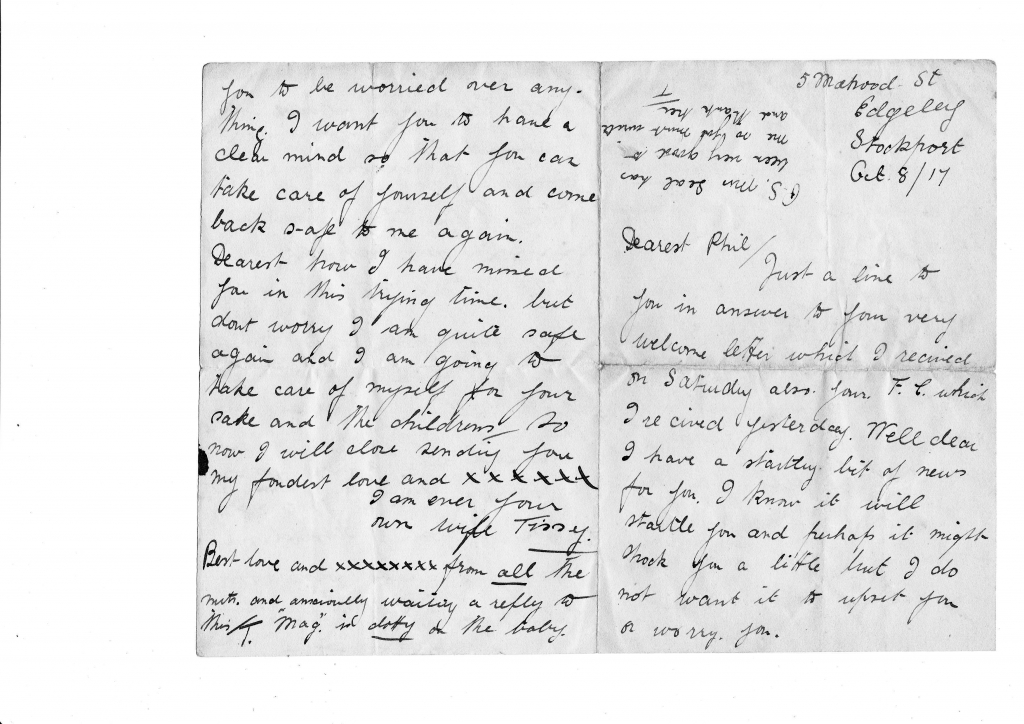 5 Mahood St
Edgeley
Stockport
Oct. 8/17
Dearest Phil/
Just a line to
you in answer to your very
welcome letter which I recived
on Saturday also your. F. C. which
I recived yesterday. Well dear
I have a startly bit of news
for you. I know it will
startle you and perhaps it might
shock you a little but I do
not want it to upset you
or worry. you.
P.S. Mrs Seal has
been very good to
me so just
and thank her
you to be worried over any-
thing. I want you to have a
clear mind so that you can
take care of yourself and come
back safe to me again.
Dearest how I have missed
you in this trying time. but
dont worry I am quite safe
again and I am going to
take care of myself for your
sake and the childrens/ So
now I will close sending you
my fondest love and xxxxxx
I am ever your
own wife Tissy.
Best love and xxxxxxxx from all the
and anxiously waiting a reply to
this "Mag" is dotty on the baby.